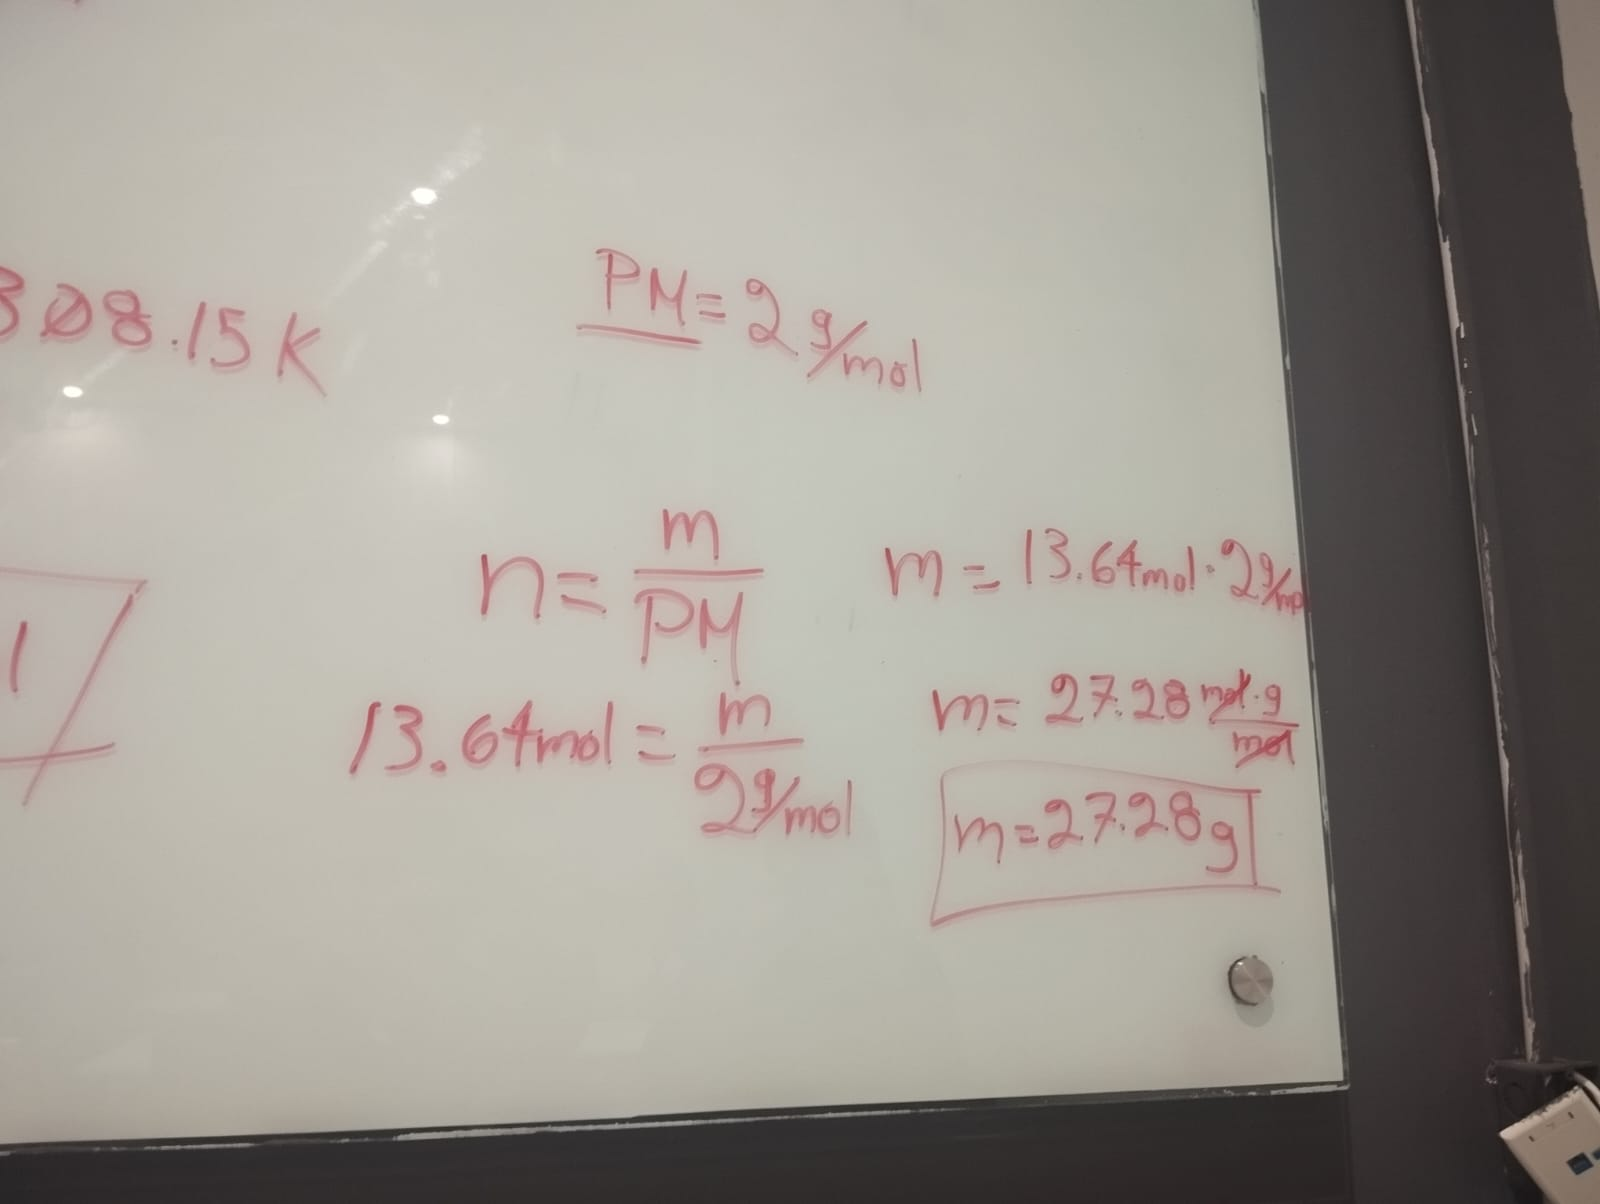 308.15 K
PM = 2 g/mol
n = m/PM
13.64mol = m/2 g/mol
m = 13.64mol · 2 g/mol
m = 27.28 mol·g/mol
m = 27.28 g
1